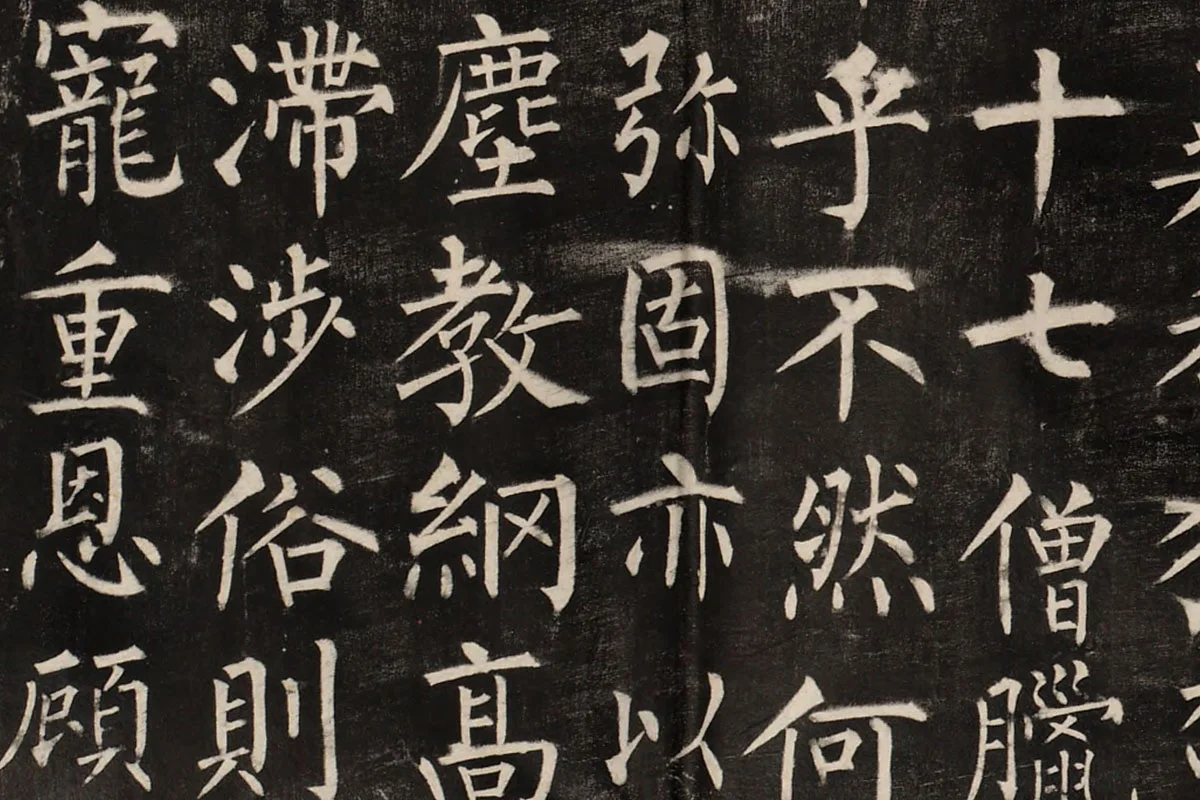 十七僧臘
乎不然何
弥固亦以
塵教綱高
滯涉俗則
寵重恩顧